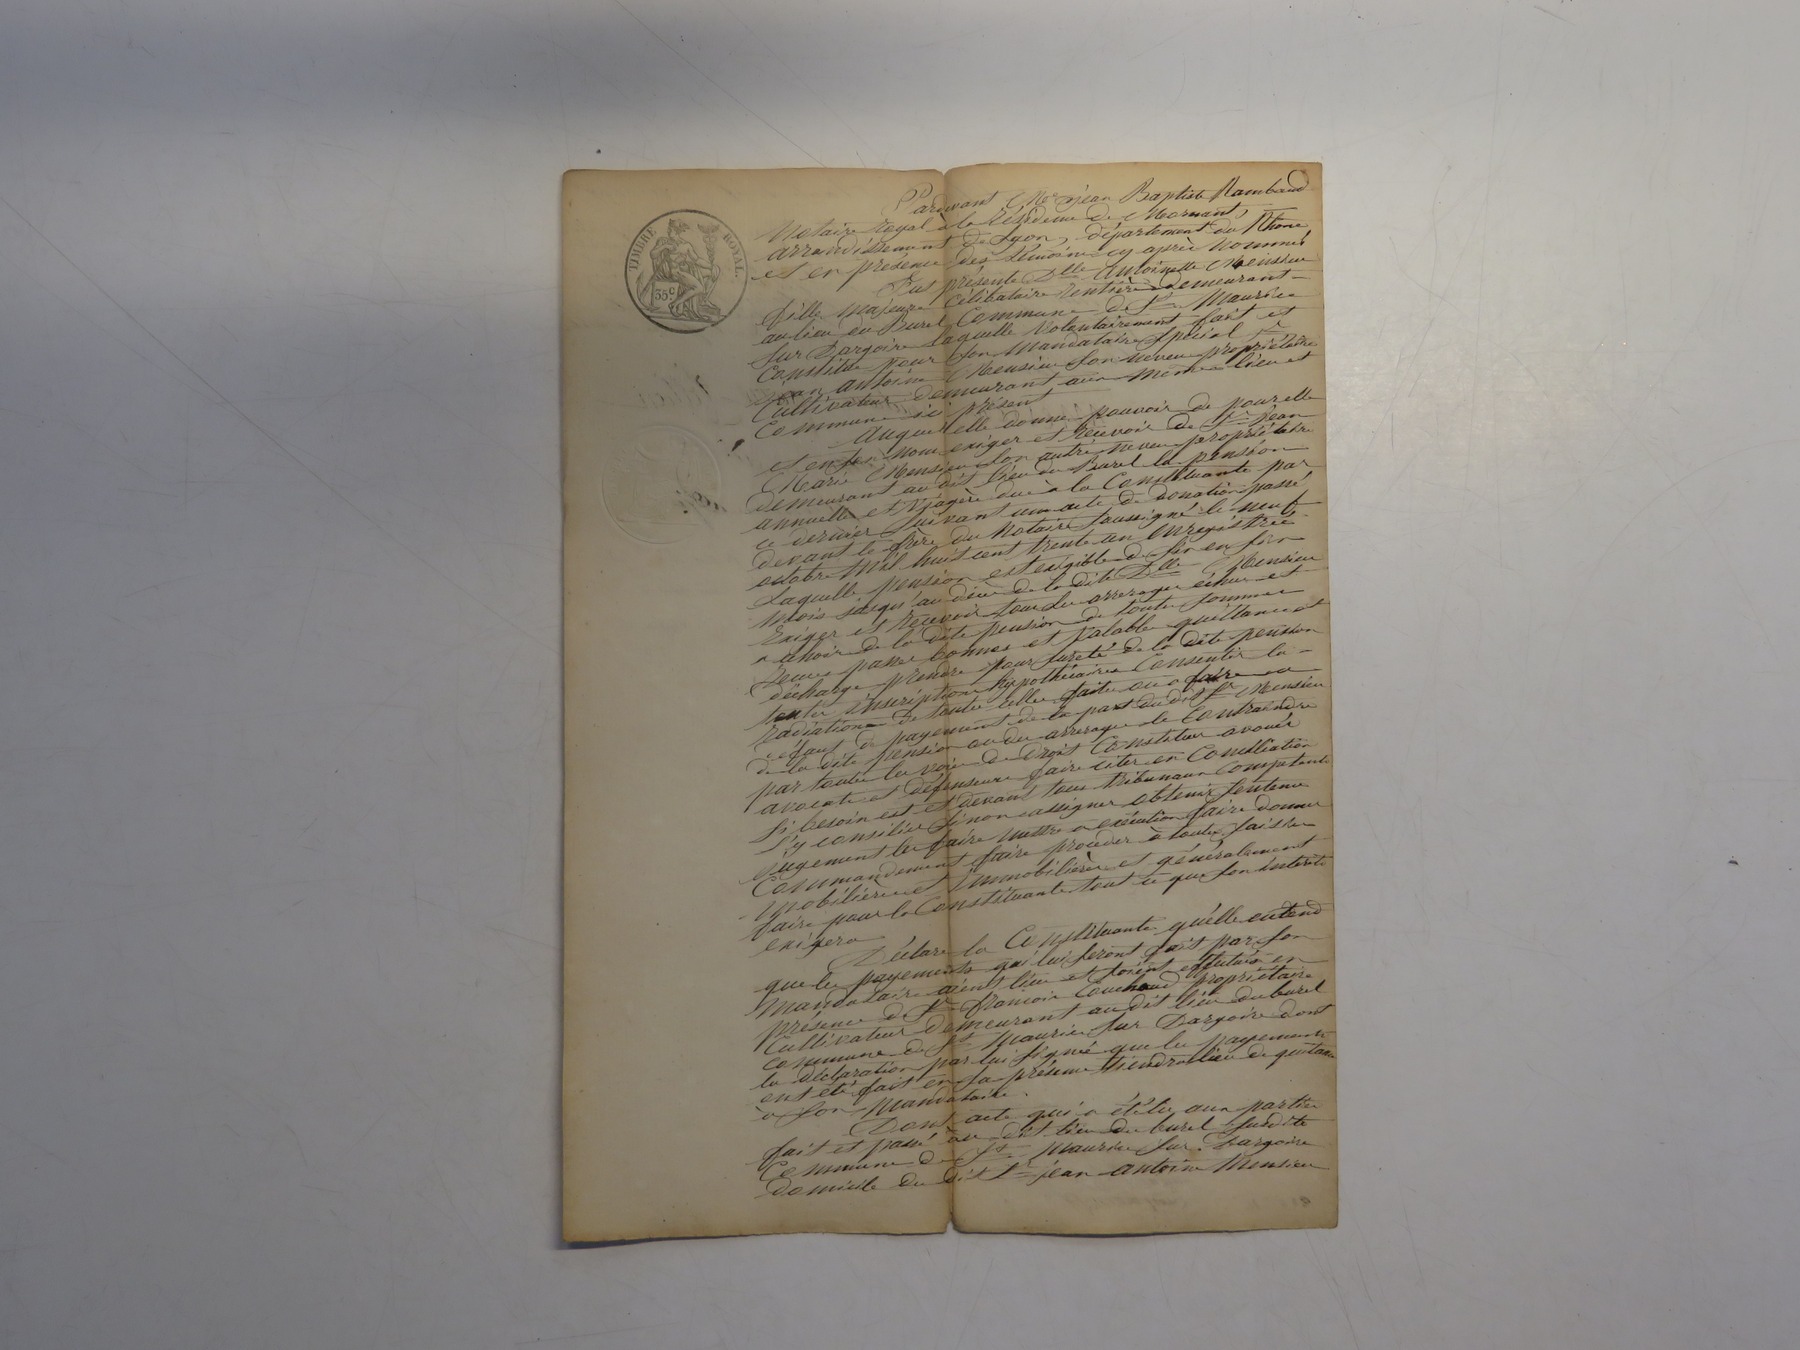 TIMBRE ROYAL.
35c
Pardevant Me jean Baptiste Rambaud
Notaire Royal à la Résidence de Mornant,
arrondissement de Lyon, département du Rhône
et en présence des témoins cy après nommés
fut présente Dlle antoinette Mensieu
fille majeure Célibataire Rentière demeurant
au lieu du Burel Commune de St Maurice
sur Dargoire Laquelle Volontairement fait et
Constitue pour son Mandataire Spécial Sr
jean antoine Mensieu son neveu propriétaire
Cultivateur demeurant aux mêmes lieu et
Commune ici présent
auquel elle donne pouvoir de pour elle
et en son nom exiger et recevoir de Sr jean
Marie Mensieu son autre neveu propriétaire
demeurant au dit lieu du Burel la pension
annuelle et Viagère due à la Constituante par
ce dernier suivant un acte de donation passé
devant le frère du Notaire soussigné le neuf
octobre Mil huit cent trente un Enregistrée
Laquelle pension est exigible de six en six
mois jusqu'au décès de la dite Dlle Mensieu
Exiger et recevoir tous les arrerages échus et
a échoir de la dite pension de toutes sommes
Reçues passer bonnes et valable quittance et
décharge prendre pour sureté de la dite pension
toutes inscriptions hypothécaires Consentir la
radiation de toutes celles faites ou a faire a
défaut de payement de la part du dit Sr Mensieu
de la dite pension ou des arrerages le Contraindre
par toutes les voies de droit Constituer avoués
avocats et défenseurs faire citer en Conciliation
Si besoin est et devant tous tribunaux Compétents
S'y concilier Sinon assigner obtenir Sentence
jugement les faire mettre a exécution faire donner
Commandement faire procéder à toutes saisies
Mobilières et immobilières et généralement
faire pour la Constituante tout ce que son intérêt
exigera
Déclare la Constituante qu'elle entend
que les payements qui lui seront fait par son
Mandataire aient lieu et soient effectués en
présence de Sr françois Couchoud propriétaire
Cultivateur demeurant au dit lieu du burel
commune de St Maurice sur Dargoire dont
la déclaration par lui signée que les payements
ont été fait en sa présence tiendra lieu de quitance
à son Mandataire.
Dont acte qui a été lu aux parties
fait et passé au dit lieu du burel susdite
Commune de St Maurice sur Dargoire
domicile du dit Sr jean antoine Mensieu